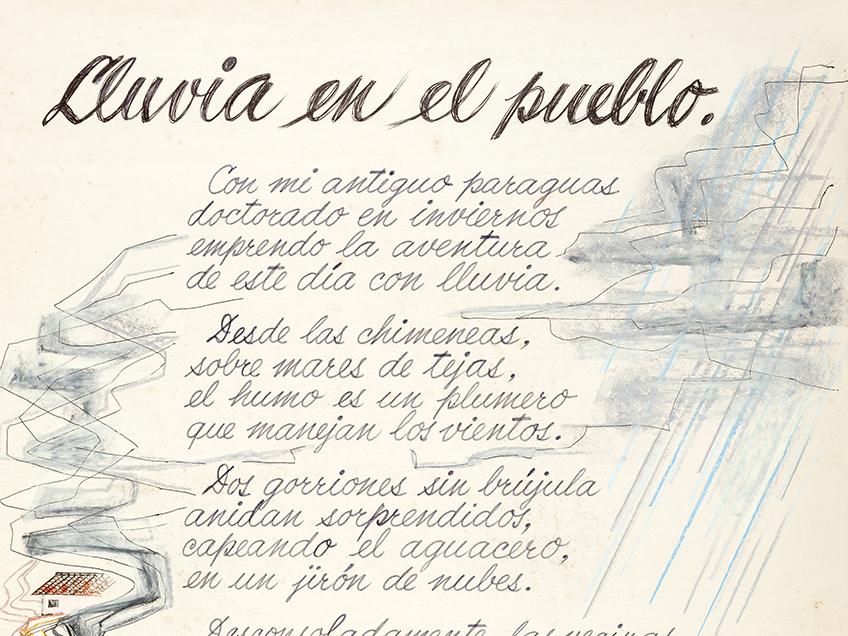 Lluvia en el pueblo.
Con mi antiguo paraguas
doctorado en inviernos
emprendo la aventura
de este día con lluvia.
Desde las chimeneas,
sobre mares de tejas,
el humo es un plumero
que manejan los vientos.
Dos gorriones sin brújula
anidan sorprendidos,
capeando el aguacero,
en un jirón de nubes.
Desconsoladamente las vecinas